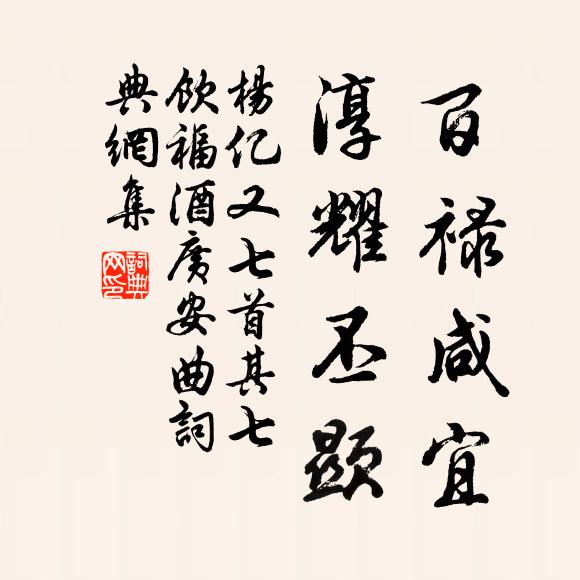 百祿咸宜
淳耀丕顯
楊亿又七首其七
飲福酒廣安曲詞
典網集
詞典網印